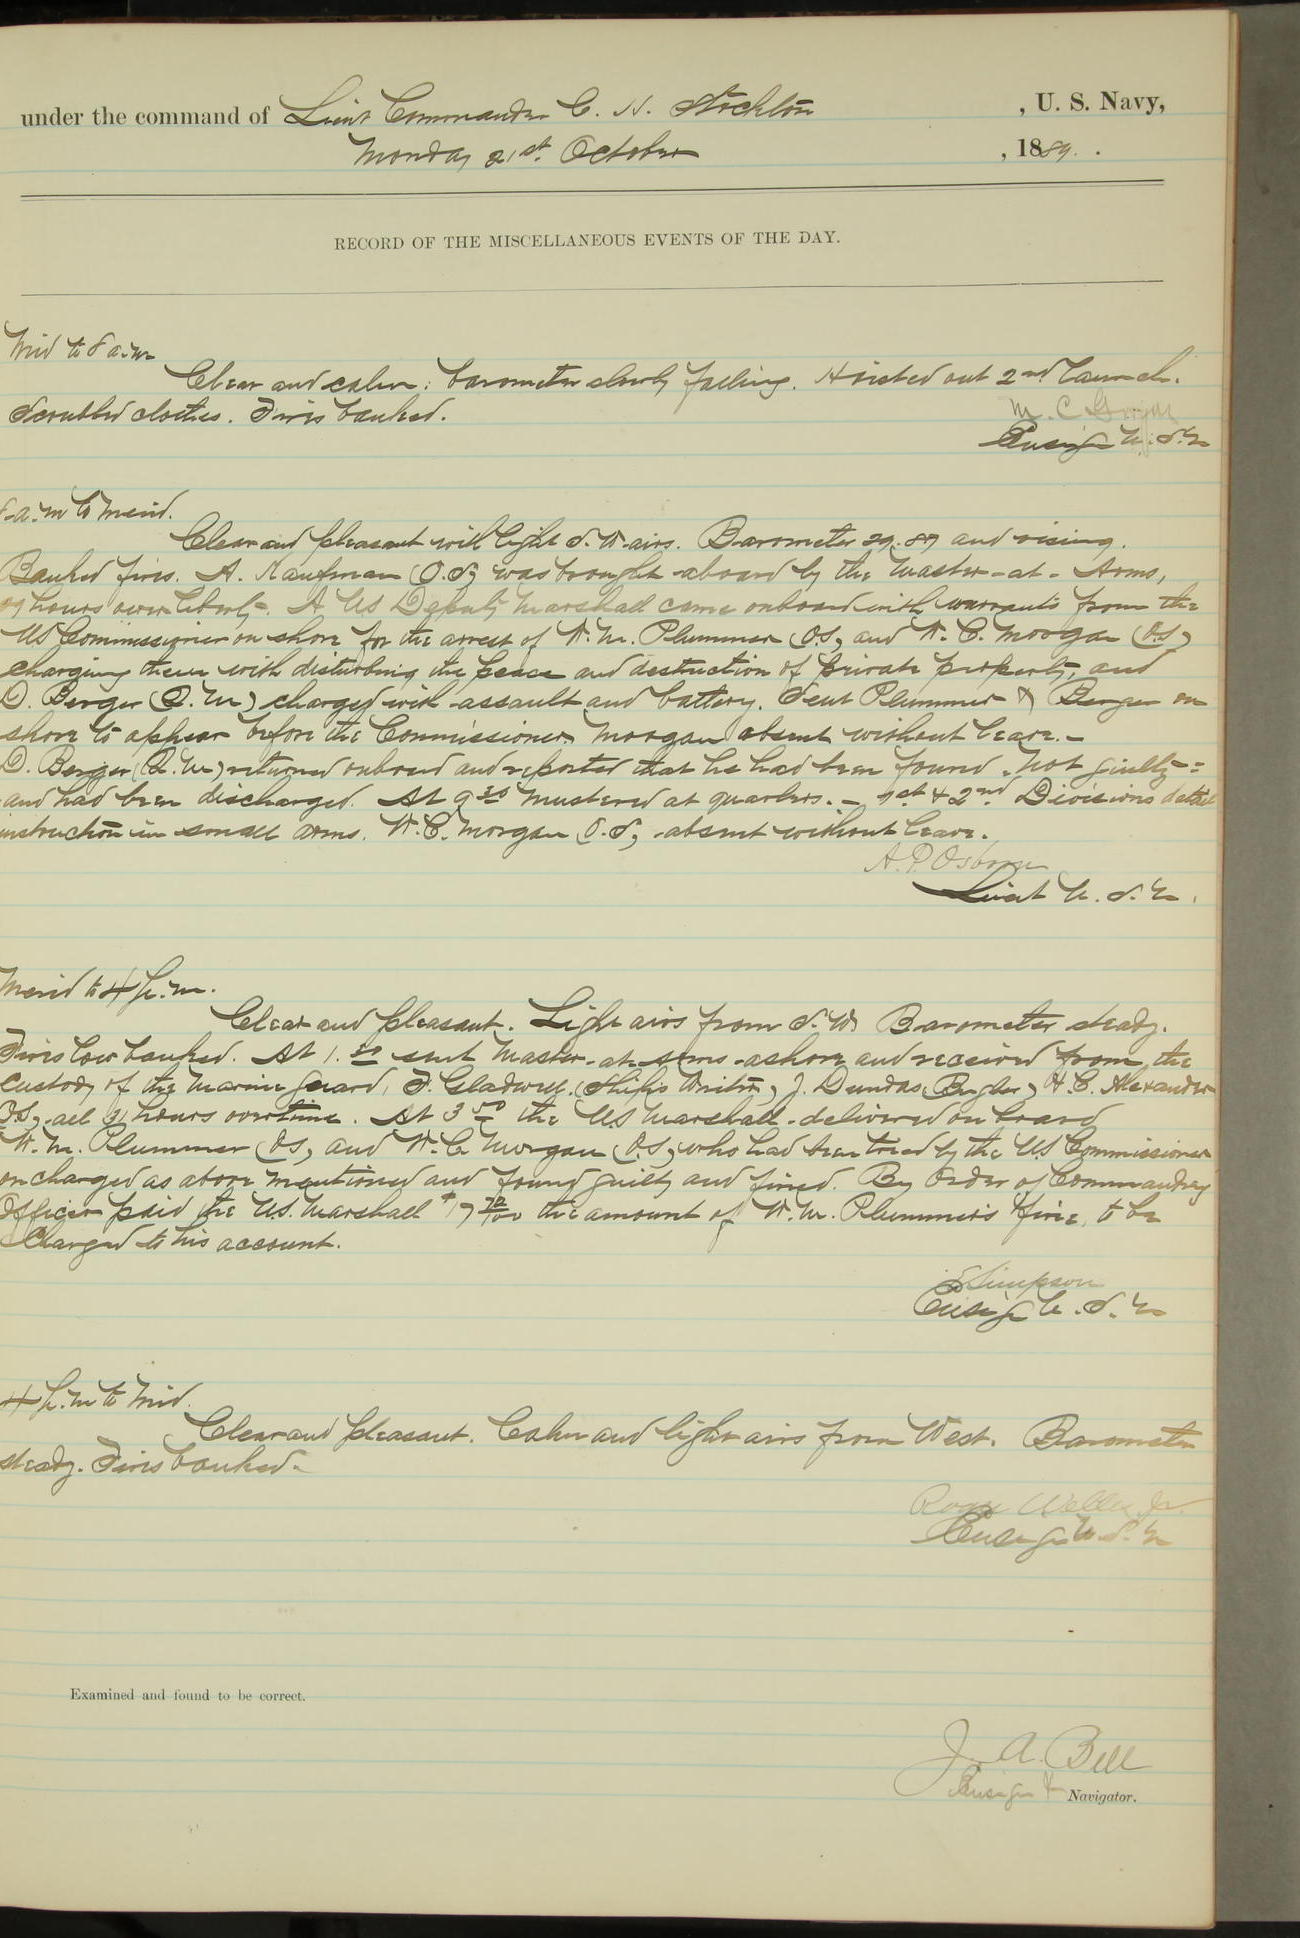 under the command of Lieut Commander C. H. Stockton , U. S. Navy,
Monday 21st October , 1889.
RECORD OF THE MISCELLANEOUS EVENTS OF THE DAY.
Mid to 8 a.m
Clear and calm: barometer slowly falling. Hoisted out 2nd launch.
Scrubbed clothes. Fires banked.
M. C.
Ensign U.S.N
8 a.m to Merid.
Clear and pleasant with light S.W. airs. Barometer 29.89 and rising.
Banked fires. A. Kaufman (O.S) was brought aboard by the Master-at-Arms,
hours over liberty. A US Deputy Marshall came onboard with warrants from the
US Commissioner on shore for the arrest of W. M. Plummer (O.S) and W. C. Morgan (O.S)
charging them with disturbing the peace and destruction of private property, and
D. Berger (Q.M) charged with assault and battery. Sent Plummer & Berger on
shore to appear before the Commissioner. Morgan absent without leave.-
D. Berger (Q.M) returned onboard and reported that he had been found "not guilty"
and had been discharged. At 9 30 mustered at quarters. - 1st & 2nd Divisions
instruction in small arms. W.C. Morgan O.S, absent without leave.
A. P. Osborn
Lieut U.S.N.
Merid to 4 p.m.
Clear and pleasant. Light airs from S.W. Barometer steady.
Fires low banked. At 1. sent Master-at-Arms ashore and received from the
custody of the Marine Guard, F. Gladwell (Ship's Writer), J. Dundas (Bugler) H.C. Alexander
OS, all hours overtime. At 3 the US Marshall delivered on board
W. M. Plummer OS, and W. C. Morgan (O.S, who had been tried by the US Commissioner
on charged as above mentioned and found guilty and fined. By order of Commanding
Officer paid the US. Marshall the amount of W. M. Plummer's fine, to be
charged to his account.
E Simpson
Ensign U.S.N
4 p.m to Mid.
Clear and pleasant. Calm and light airs from West. Barometer
steady. Fires banked.
Roger Welles Jr.
Ensign U.S.N
Examined and found to be correct.
J. A. Bell
Ensign & Navigator.